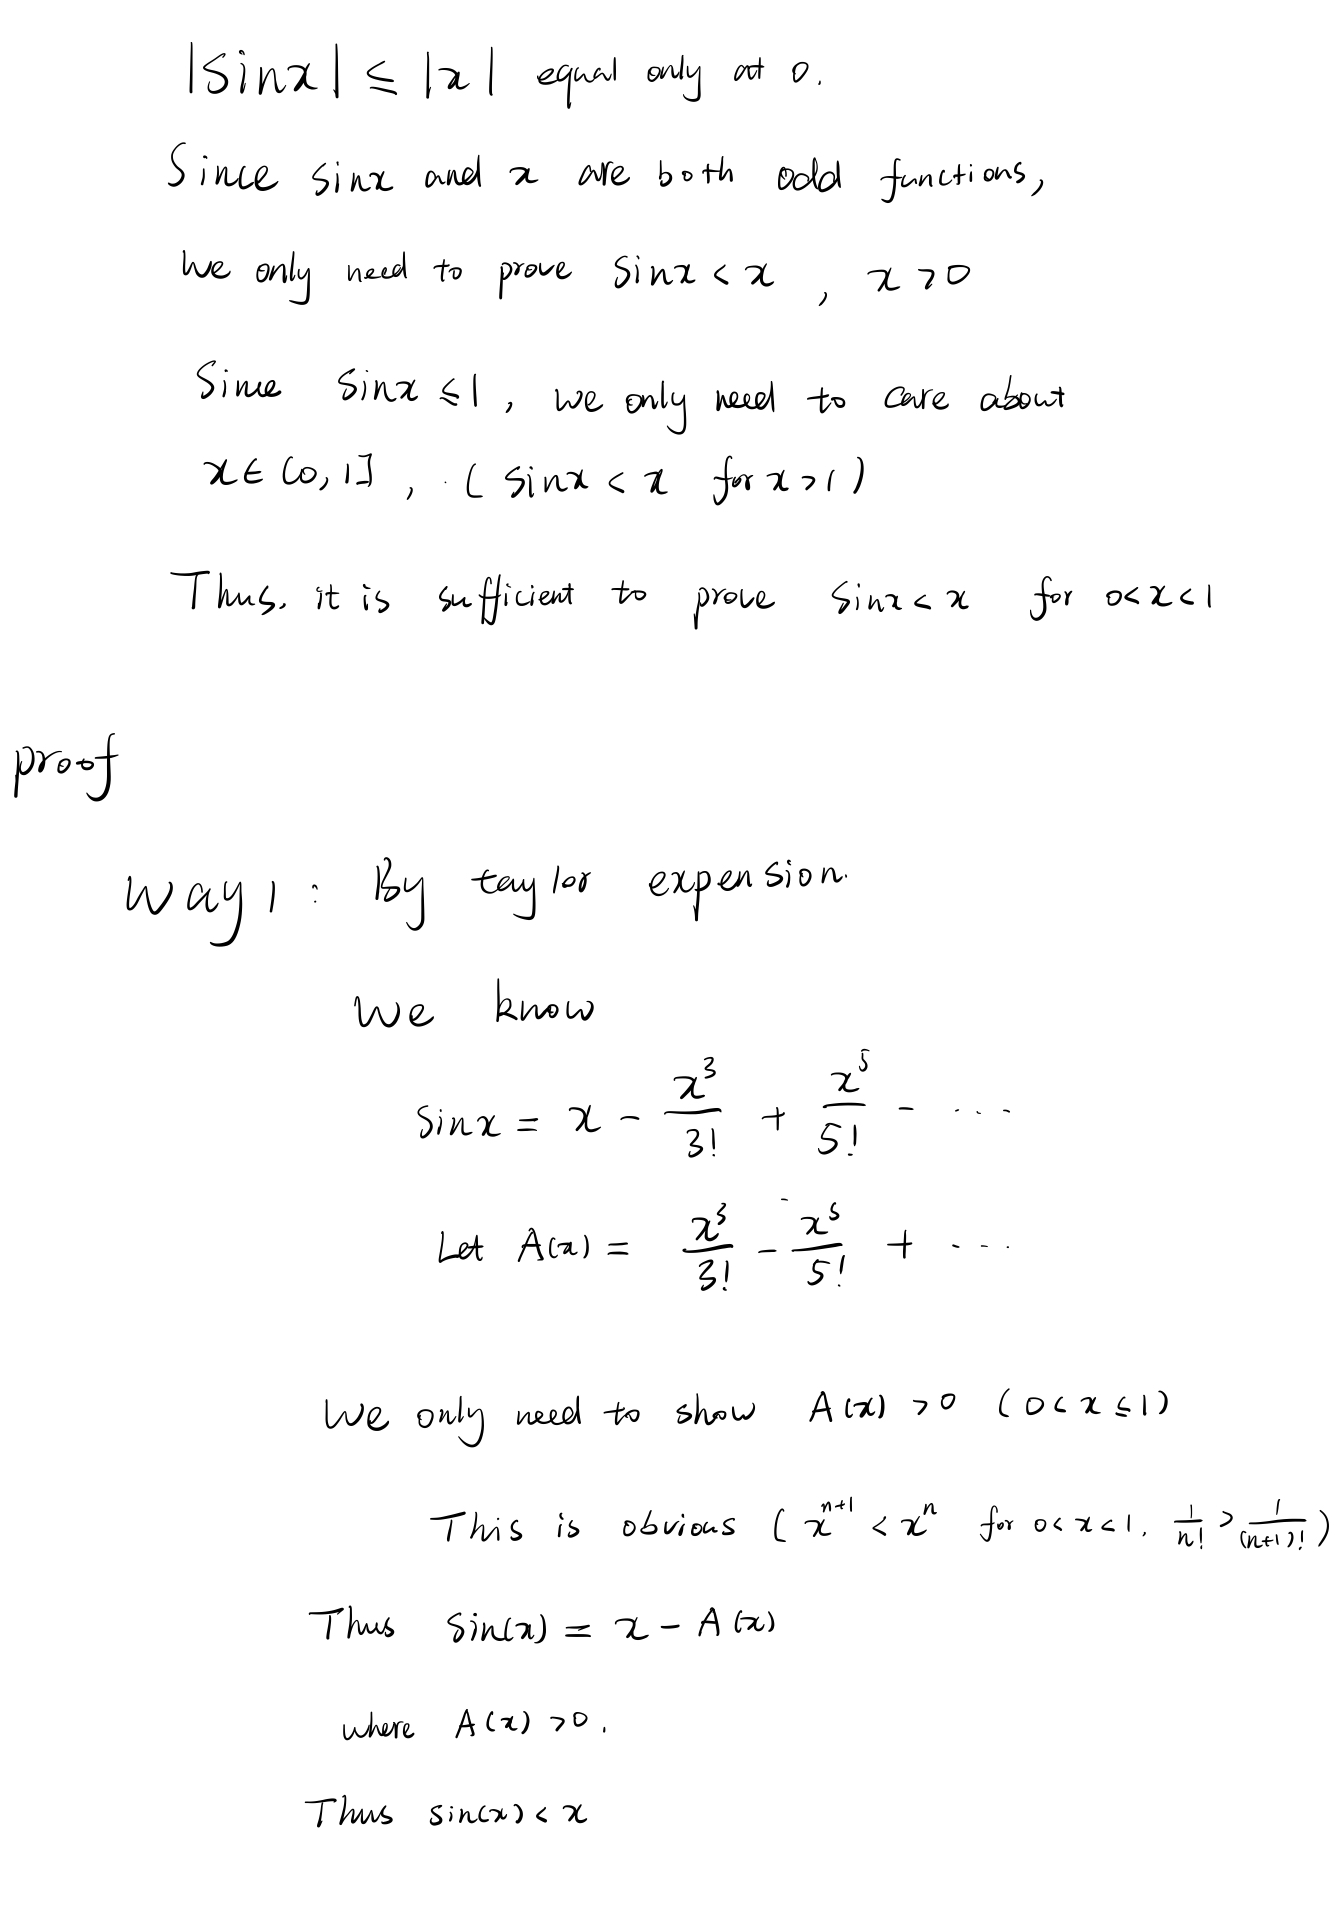 |sinx| ≤ |x| equal only at 0.
Since sinx and x are both odd functions,
We only need to prove sinx < x , x > 0
Sine sinx ≤ 1 , we only need to care about
x ∈ (0, 1] , ( sinx < x for x > 1 )
Thus. it is sufficient to prove sinx < x for 0 < x < 1
proof
way 1 : By taylor expension.
We know
Sinx = x - x³/3! + x⁵/5! - ....
Let A(x) = x³/3! - x⁵/5! + ....
We only need to show A(x) > 0 ( 0 < x ≤ 1 )
This is obvious ( xⁿ⁺¹ < xⁿ for 0 < x < 1. 1/n! > 1/(n+1)! )
Thus Sin(x) = x - A(x)
where A(x) > 0 .
Thus sin(x) < x